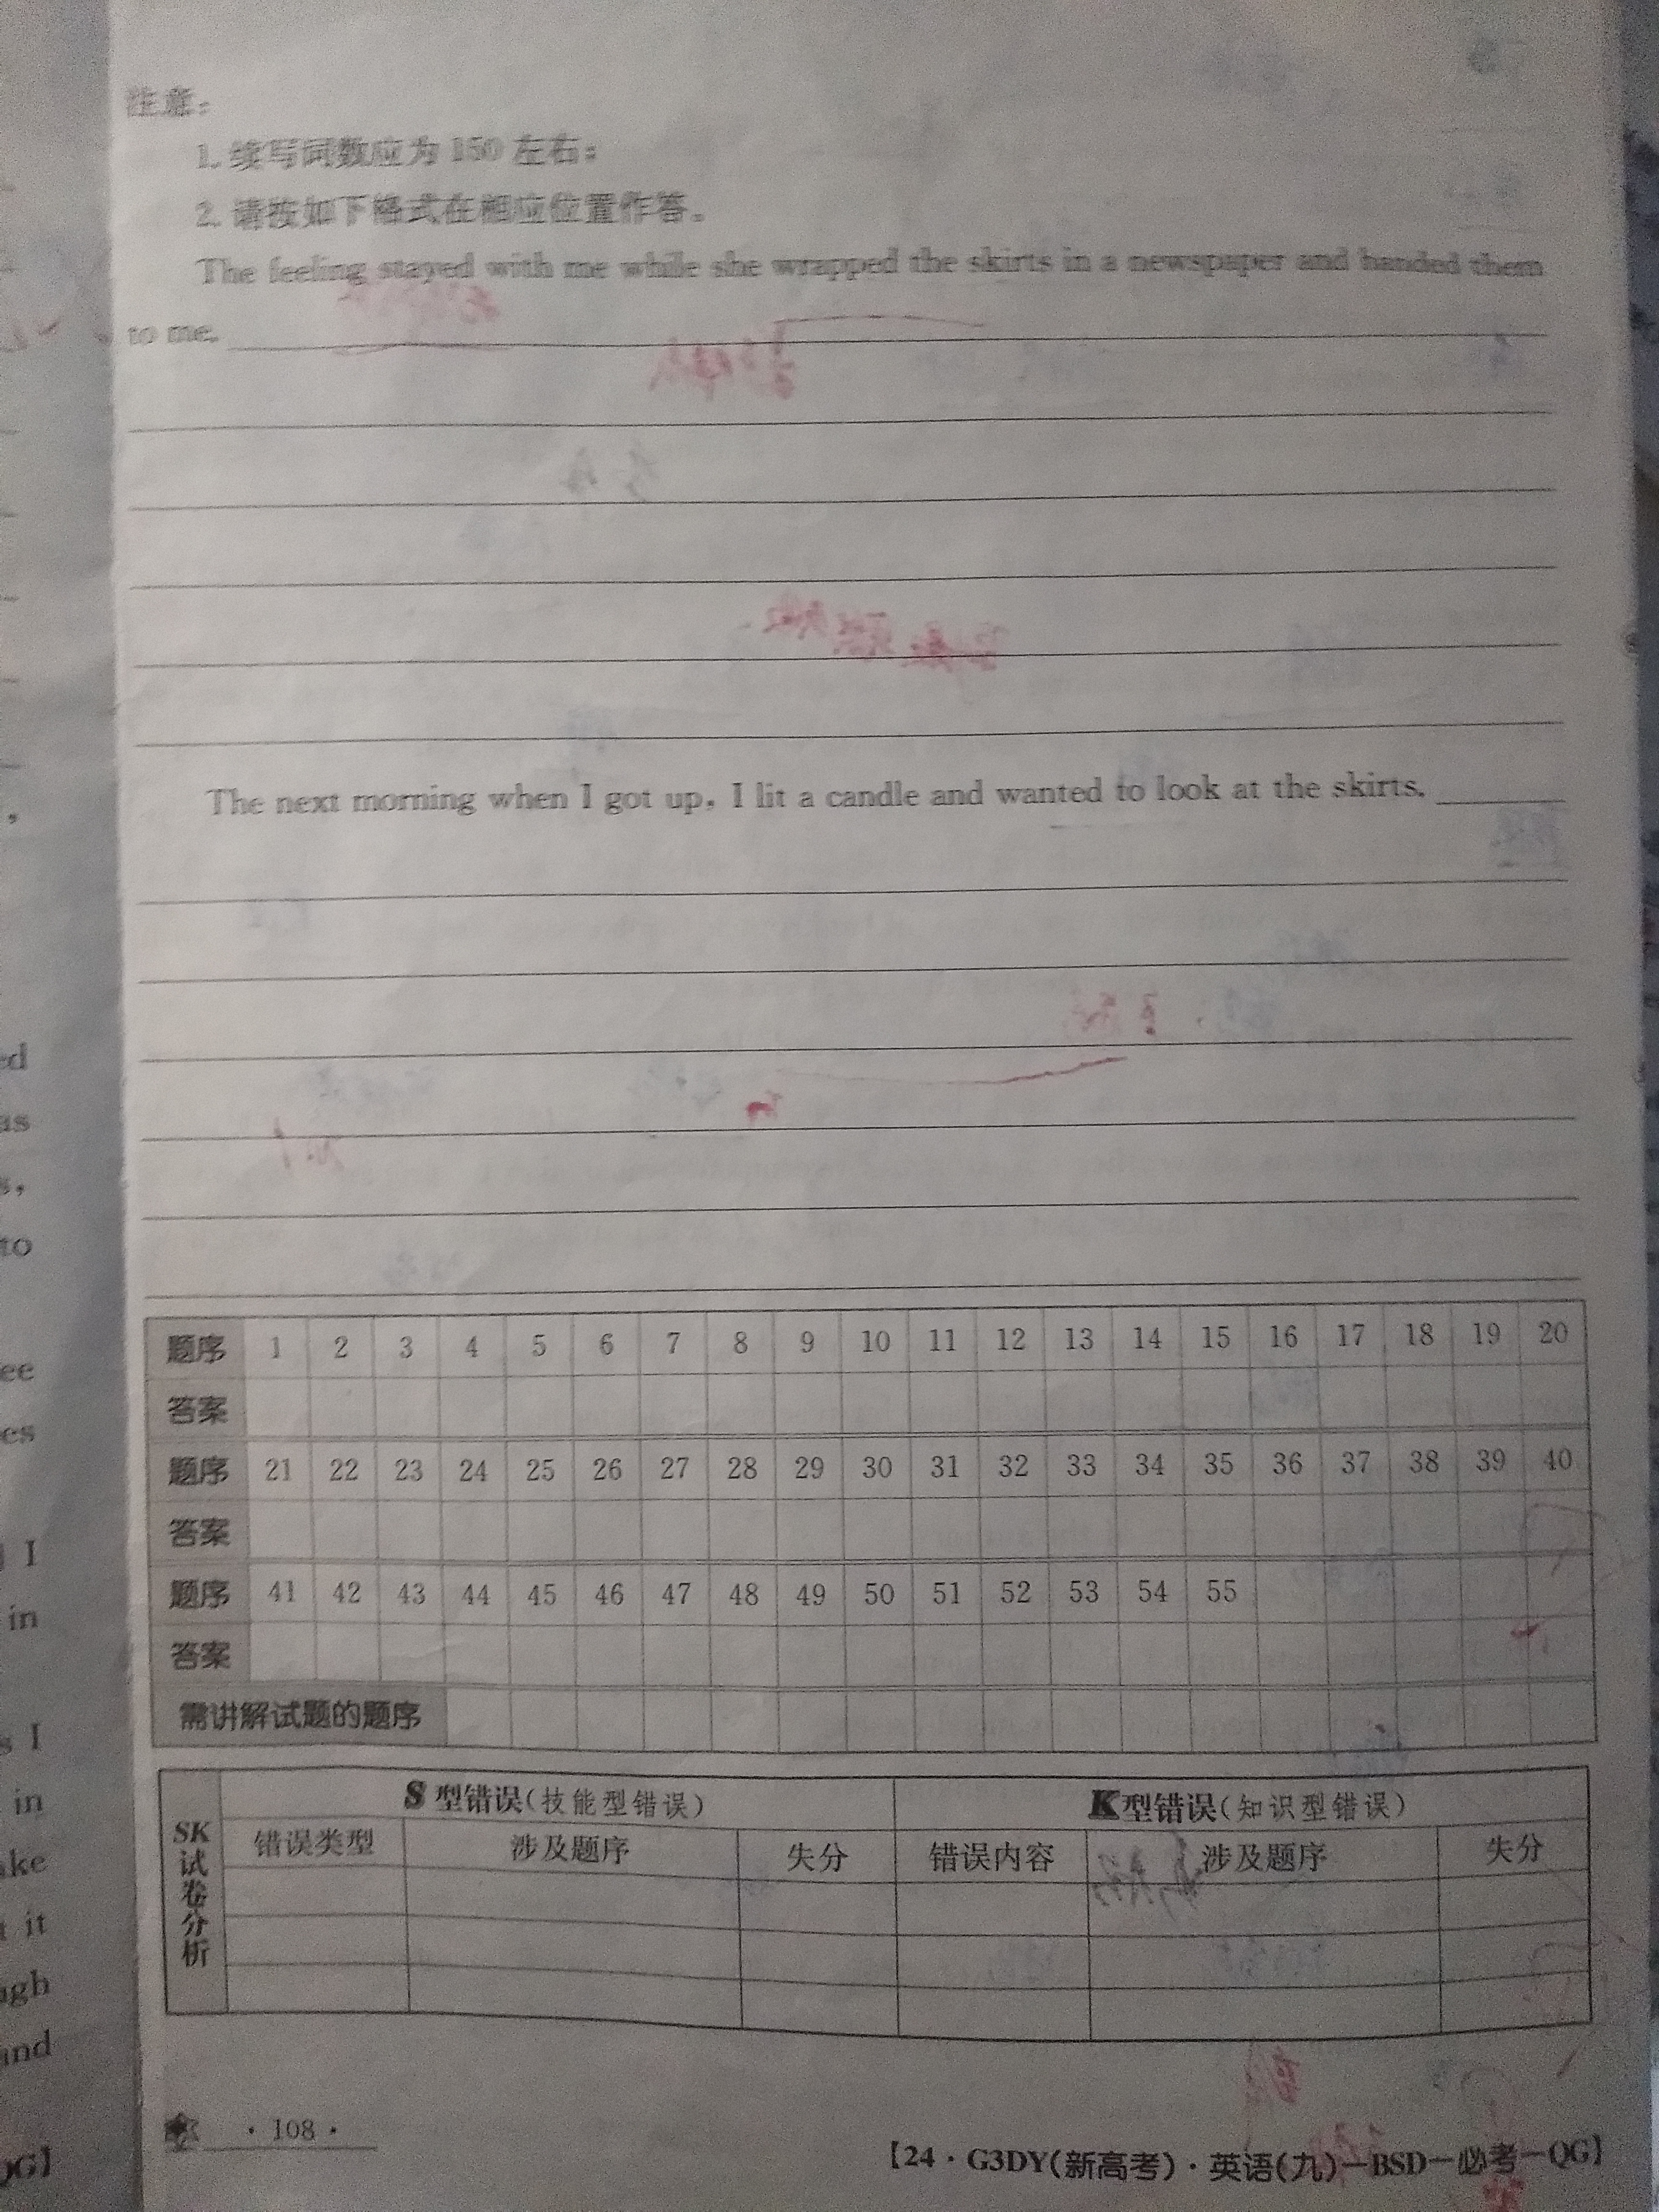 注意：
1. 续写词数应为 150 左右；
2. 请按如下格式在相应位置作答。
The feeling stayed with me while she wrapped the skirts in a newspaper and handed them
to me.
The next morning when I got up, I lit a candle and wanted to look at the skirts.
题序 1 2 3 4 5 6 7 8 9 10 11 12 13 14 15 16 17 18 19 20
答案
题序 21 22 23 24 25 26 27 28 29 30 31 32 33 34 35 36 37 38 39 40
答案
题序 41 42 43 44 45 46 47 48 49 50 51 52 53 54 55
答案
需讲解试题的题序
SK试卷分析
S 型错误(技能型错误) K型错误(知识型错误)
错误类型 涉及题序 失分 错误内容 涉及题序 失分
· 108 ·
【24 · G3DY(新高考) · 英语(九)-BSD-必考-QG】